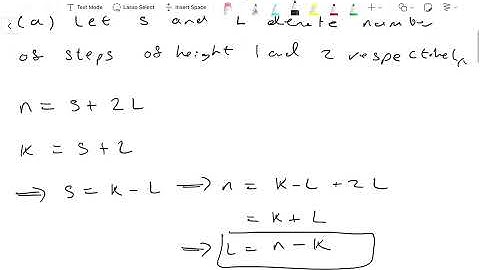 Text Mode Lasso Select Insert Space
(a) Let S and L denote number
of steps of height 1 and 2 respectively
n = S + 2L
K = S + L
⟹ S = K - L ⟹ n = K - L + 2L
= K + L
⟹ L = n - K